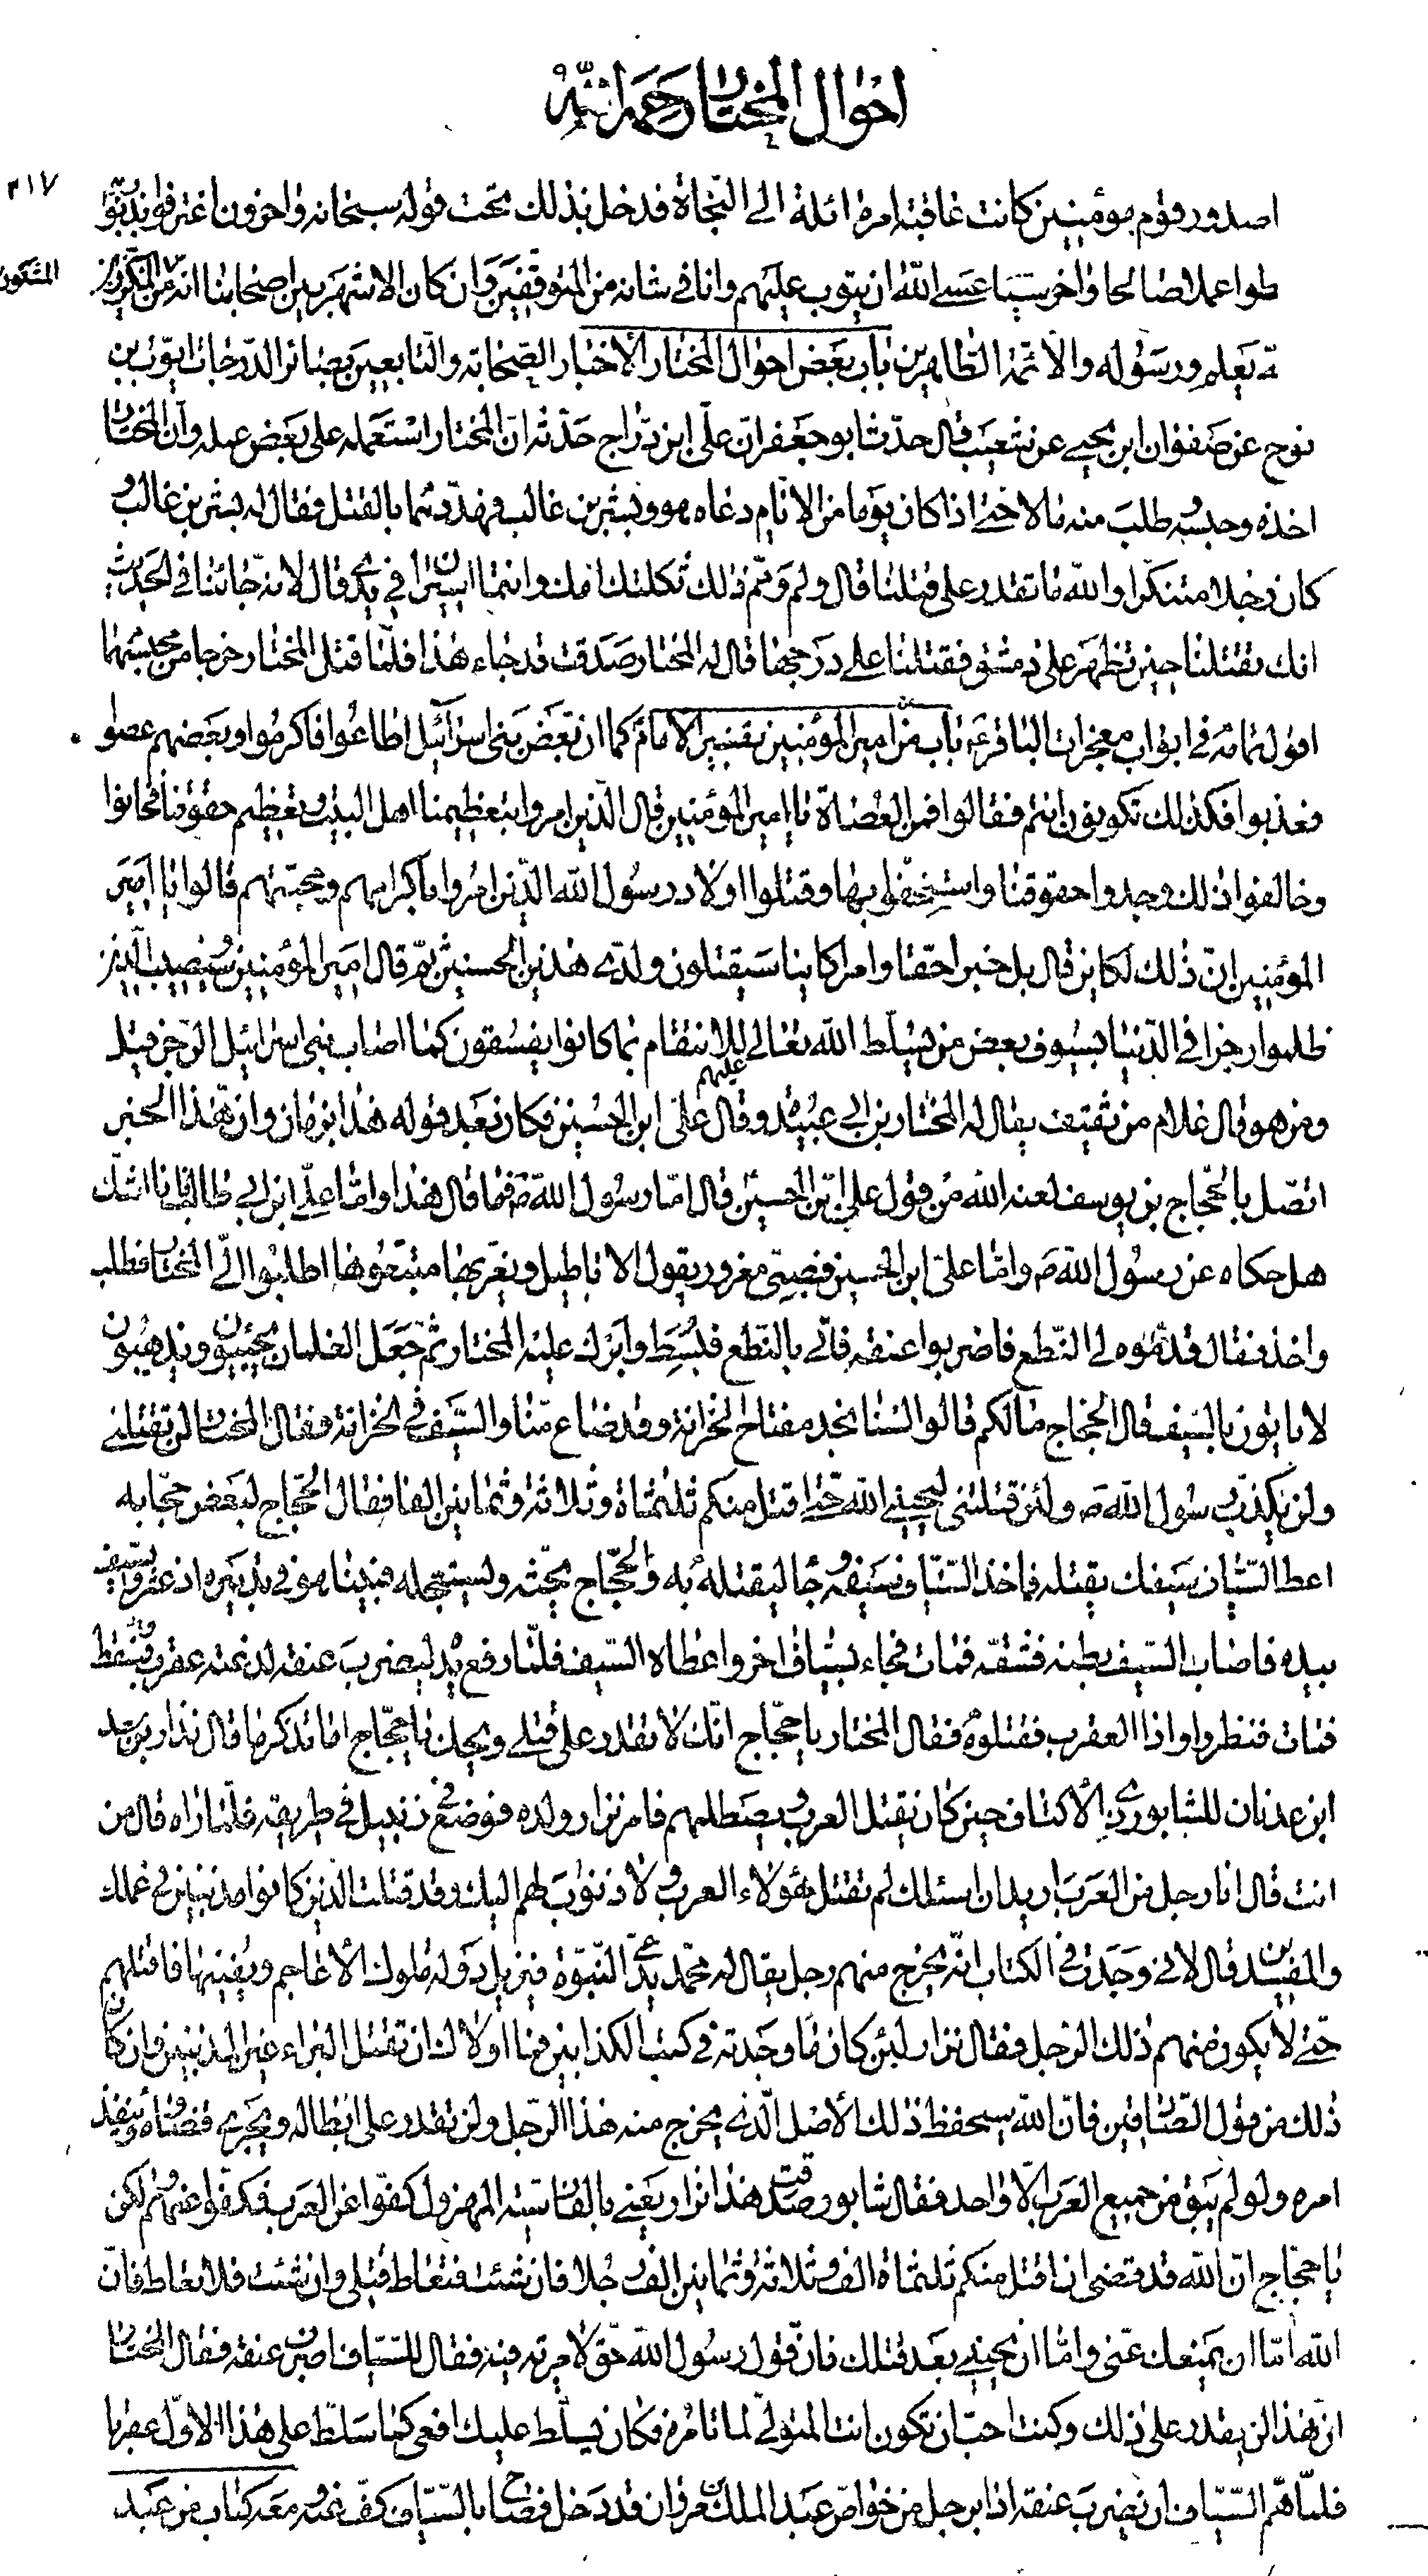 احوال المختار رحمه الله
٣١٧
اصدور قوم مؤمنين كانت عاقبة امره ائلة الى النجاة فدخل بذلك تحت قوله سبحانه واخرون اعترفوا بذنوبهم
خلطوا عملا صالحا واخر سيئا عسى الله ان يتوب عليهم وانا في شانه من المتوقفين وان كان الاشهر بين اصحابنا انه من المشكورين
المشكورين
بعلم ورسوله والائمة الطاهرين باب بعض احوال المختار الاخبار الصحابة والتابعين بصائر الدرجات ايوب بن
نوح عن صفوان ابن يحيى عن شعيب قال حدثنا ابو جعفر ان علي ابن دراج حدثه ان المختار استعمله على بعض عمله وان المختار
اخذه وحبسه وطلب منه مالا حتى اذا كان يوما من الايام دعاه هو وبشر بن غالب فهددهما بالقتل فقال له بشر بن غالب و
كان رجلا متنكرا والله ما تقدر على قتلنا قال ولم ومم ذلك ثكلتك امك وانتما اسيران في يدي قال لانه جائنا في الحديث
انك تقتلنا حين تظهر على دمشق فتقتلنا على درجها قال له المختار صدقت قد جاء هذا فلما قتل المختار خرجا من محبسهما
اقول تمامه في ابواب معجزات الباقر ع باب من امير المؤمنين تفسير الامام كما ان بعض بني اسرائيل اطاعوا فاكرموا وبعضهم عصوا
فعذبوا فكذلك تكونون انتم فقالوا فمن العصاة يا امير المؤمنين قال الذين امروا بتعظيمنا اهل البيت وتعظيم حقوقنا فخانوا
وخالفوا ذلك وجحدوا حقوقنا واستخفوا بها وقتلوا اولاد رسول الله الذين امروا باكرامهم ومحبتهم قالوا يا امير
المؤمنين ان ذلك لكاين قال بل خبرا حقا وامرا كاينا سيقتلون ولدي هذين الحسنين ثم قال امير المؤمنين سيصيب الذين
ظلموا رجزا في الدنيا بسيوف بعض من يسلط الله تعالى عليهم للانتقام بما كانوا يفسقون كما اصاب بني اسرائيل الرجز قيل
ومن هو قال غلام من ثقيف يقال له المختار بن ابي عبيدة وقال علي ابن الحسين فكان بعد قوله هذا بزمان وان هذا الخبر
اتصل بالحجاج بن يوسف لعنه الله من قول علي ابن الحسين قال اما رسول الله ص فما قال هذا واما علي ابن ابي طالب فانا اشك
هل حكاه عن رسول الله ص واما علي ابن الحسين فصبي مغرور يقول الاباطيل ويغر بها متبعوها اطلبوا الي المختار فطلب
واخذ فقال قدموه الى النطع فاضربوا عنقه فاتي بالنطع فبسط وابرك عليه المختار ثم جعل الغلمان يجيئون ويذهبون
لا ياتون بالسيف قال الحجاج ما لكم قالوا لسنا نجد مفتاح الخزانة وقد ضاع منا والسيف في الخزانة فقال المختار لن تقتلني
ولن يكذب رسول الله ص ولئن قتلتني ليحييني الله حتى اقتل منكم ثلثمائة وثلاثة وثمانين الفا فقال الحجاج لبعض حجابه
اعط السياف سيفك يقتله فاخذ السياف سيفه وجاء ليقتله به والحجاج يحثه ويستعجله فبينا هو في تدبيره اذ عثر والسيف
بيده فاصاب السيف بطنه فشقه فمات فجاء بسياف اخر واعطاه السيف فلما رفع يده ليضرب عنقه لدغته عقرب فسقط
فمات فنظروا واذا العقرب فقتلوه فقال المختار يا حجاج انك لا تقدر على قتلي ويحك يا حجاج اما تذكر ما قال نزار بن معد
ابن عدنان للشابور ذي الاكتاف حين كان يقتل العرب ويصطلمهم فامر نزار ولده فوضع في زنبيل في طريقه فلما راه قال من
انت قال انا رجل من العرب اريد ان اسئلك لم تقتل هؤلاء العرب ولا ذنوب لهم اليك وقد قتلت الذين كانوا مذنبين في عملك
والمفسدين قال لاني وجدت في الكتاب انه يخرج منهم رجل يقال له محمد يدعى النبوة فيزيل دولة ملوك الاعاجم ويفنيها فاقتلهم
حتى لا يكون منهم ذلك الرجل فقال نزار لئن كان ما وجدته في كتب الكذابين فما اولاك ان تقتل البراء غير المذنبين وان كان
ذلك من قول الصادقين فان الله سيحفظ ذلك الاصل الذي يخرج منه هذا الرجل ولن تقدر على ابطاله ويجري قضاؤه وينفذ
امره ولو لم يبق من جميع العرب الا واحد فقال شابور صدقت هذا نزار يعني بالفارسية المهزول كفوا عن العرب فكفوا عنهم ولكن
يا حجاج ان الله قد قضى ان اقتل منكم ثلثمائة الف وثلاثة وثمانين الف رجلا فان شئت فتعاط قتلي وان شئت فلا تعاط فان
الله اما ان يمنعك عني واما ان يحييني بعد قتلك فان قول رسول الله حق لا مرية فيه فقال للسياف اضرب عنقه فقال المختار
ان هذا لن يقدر على ذلك وكنت احب ان تكون انت المتولي لما تامره فكان يسلط عليك افعى كما سلط على هذا الاول عقربا
فلما هم السياف ان يضرب عنقه اذا برجل من خواص عبد الملك بن مروان قد دخل فصاح يا السياف كف عنه ومعه كتاب من عبد